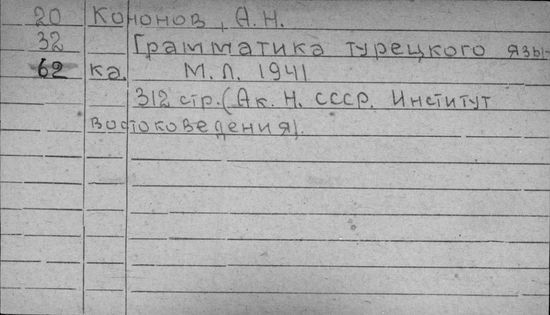 20 Кононов, А.Н.
32 Грамматика турецкого язы-
62 ка. М.Л. 1941
312 стр. (Ак. Н. СССР. Институт
Востоковедения).